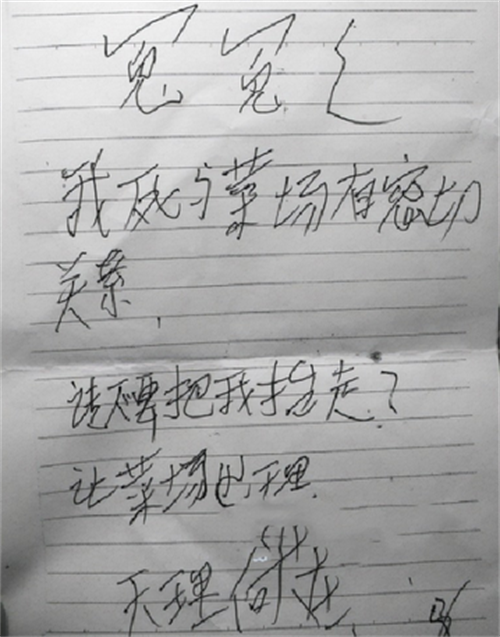 冤冤
我死与菜场有密切
关系.
请不要把我抬走?
让菜场处理.
天理何在